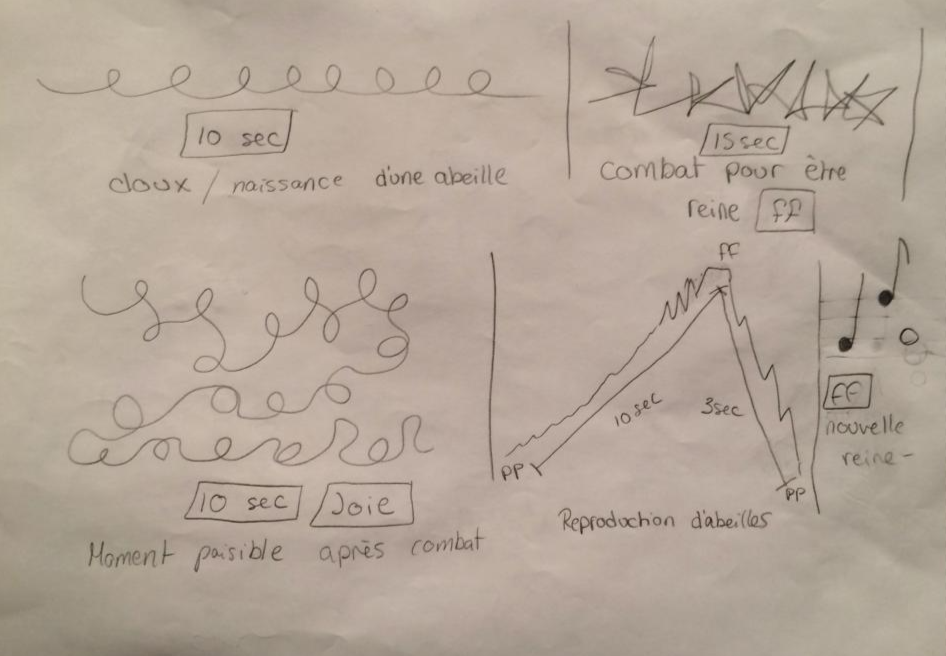 10 sec
doux / naissance d'une abeille
15 sec
combat pour être
reine ff
10 sec Joie
Moment paisible après combat
ff
10 sec
3 sec
pp
pp
Reproduction d'abeilles
ff
nouvelle
reine -